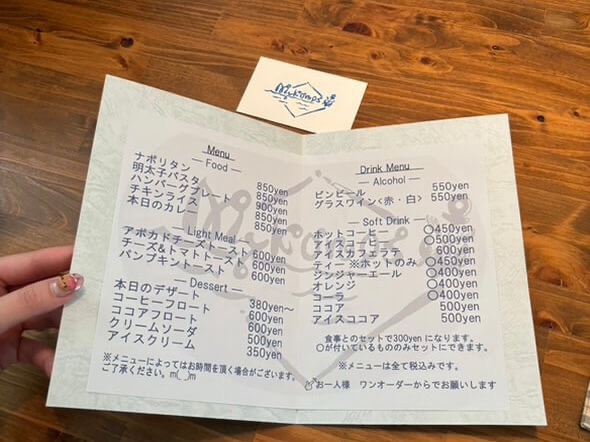 Menu
— Food —
ナポリタン 850yen
明太子パスタ 850yen
ハンバーグプレート 900yen
チキンライス 850yen
本日のカレー 850yen
— Light Meal —
アボカドチーズトースト 600yen
チーズ&トマトトースト 600yen
パンプキントースト 600yen
— Dessert —
本日のデザート 380yen～
コーヒーフロート 600yen
ココアフロート 600yen
クリームソーダ 500yen
アイスクリーム 350yen
※メニューによってはお時間を頂く場合がございます。
ご了承ください。m(__)m
Drink Menu
— Alcohol —
ビンビール 550yen
グラスワイン<赤・白> 550yen
— Soft Drink —
ホットコーヒー 〇450yen
アイスコーヒー 〇500yen
アイスカフェラテ 600yen
ティー ※ホットのみ 〇450yen
ジンジャーエール 〇400yen
オレンジ 〇400yen
コーラ 〇400yen
ココア 500yen
アイスココア 500yen
食事とのセットで300yen になります。
〇が付いているもののみセットにできます。
※メニューは全て税込みです。
お一人様 ワンオーダーからでお願いします